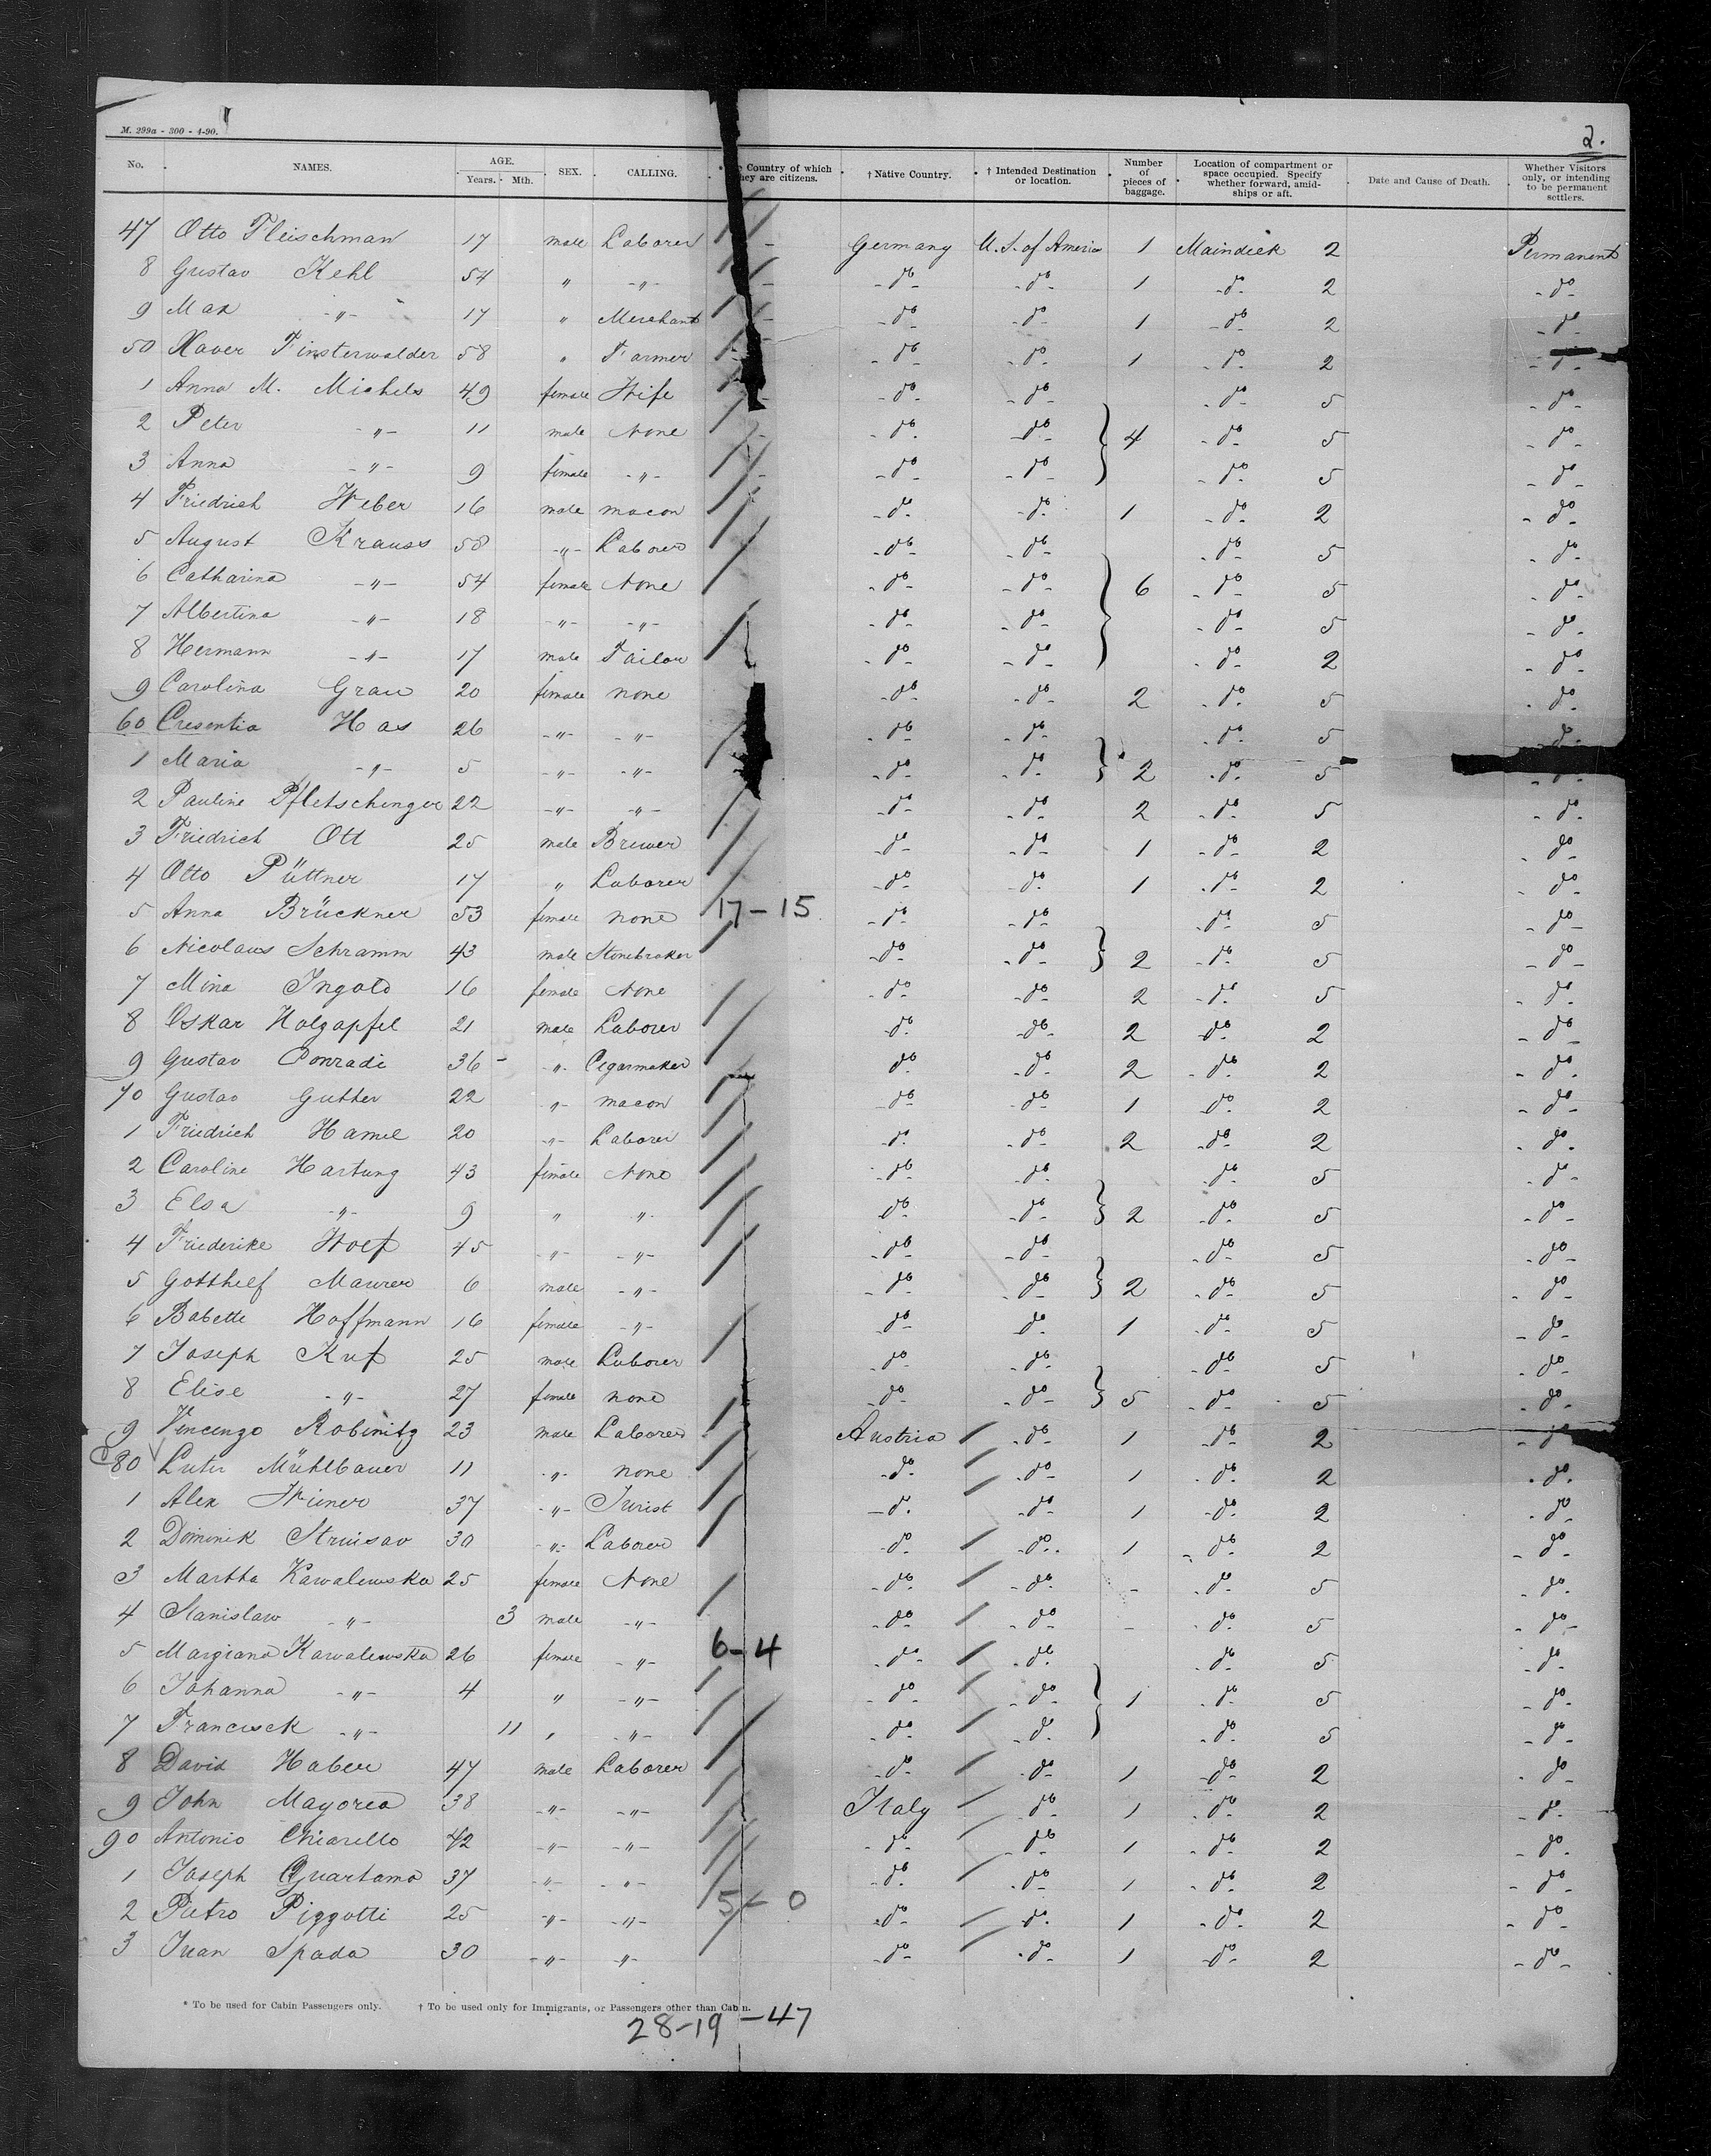 M. 299a - 300 - 4-90.
2.
No. NAMES. AGE. Years. Mth. SEX. CALLING. Country of which they are citizens. † Native Country. † Intended Destination or location. Number of pieces of baggage. Location of compartment or space occupied. Specify whether forward, amidships or aft. Date and Cause of Death. Whether Visitors only, or intending to be permanent settlers.
47 Otto Fleischman 17 male Laborer Germany U.S. of America 1 Maindeck 2 Permanent
8 Gustav Kehl 54 " -"- -do- -do- 1 -do- 2 -do-
9 Max -"- 17 " Merchant -do- -do- 1 -do- 2 -do-
50 Xaver Finsterwalder 58 " Farmer -do- -do- 1 -do- 2 -do-
1 Anna M. Michels 49 female Wife -do- -do- -do- 5 -do-
2 Peter -"- 11 male None -do- -do- 4 -do- 5 -do-
3 Anna -"- 9 female -"- -do- -do- -do- 5 -do-
4 Friedrich Weber 16 male macon -do- -do- 1 -do- 2 -do-
5 August Krauss 58 -"- Laborer -do- -do- -do- 5 -do-
6 Catharina -"- 54 female None -do- -do- 6 -do- 5 -do-
7 Albertina -"- 18 -"- -"- -do- -do- -do- 5 -do-
8 Hermann -"- 17 male Tailor -do- -do- -do- 2 -do-
9 Carolina Grau 20 female none -do- -do- 2 -do- 5 -do-
60 Cresentia Has 26 -"- -"- -do- -do- -do- 5 -do-
1 Maria -"- 5 -"- -"- -do- -do- 2 -do- 5 -do-
2 Pauline Pfletschinger 22 -"- -"- -do- -do- 2 -do- 5 -do-
3 Friedrich Ott 25 male Brewer -do- -do- 1 -do- 2 -do-
4 Otto Püttner 17 " Laborer -do- -do- 1 -do- 2 -do-
5 Anna Brückner 53 female none 17-15 -do- -do- -do- 5 -do-
6 Nicolaus Schramm 43 male Stonebraker -do- -do- 2 -do- 5 -do-
7 Mina Ingold 16 female None -do- -do- 2 -do- 5 -do-
8 Oskar Holzapfel 21 male Laborer -do- -do- 2 -do- 2 -do-
9 Gustav Conradi 36 -"- Cigarmaker -do- -do- 2 -do- 2 -do-
70 Gustav Guther 22 -"- macon -do- -do- 1 -do- 2 -do-
1 Friedrich Hamel 20 -"- Laborer -do- -do- 2 -do- 2 -do-
2 Caroline Hartung 43 female None -do- -do- -do- 5 -do-
3 Elsa -"- 9 " -"- -do- -do- 2 -do- 5 -do-
4 Friederike 45 -"- -"- -do- -do- -do- 5 -do-
5 Gotthelf Maurer 6 male -"- -do- -do- 2 -do- 5 -do-
6 Babette Hoffmann 16 female -"- -do- -do- 1 -do- 5 -do-
7 Joseph 25 male Laborer -do- -do- -do- 5 -do-
8 Elise -"- 27 female none -do- -do- 5 -do- 5 -do-
9 Vincenzo Robinitz 23 male Laborer Austria -do- 1 -do- 2 -do-
80 Mühlbauer 11 -"- none -do- -do- 1 -do- 2 -do-
1 Alex Wiener 37 -"- Jurist -do- -do- 1 -do- 2 -do-
2 Dominik 30 -"- Laborer -do- -do- 1 -do- 2 -do-
3 Martha Kawalewska 25 female None -do- -do- - -do- 5 -do-
4 Stanislaw -"- 3 male -"- -do- -do- - -do- 5 -do-
5 Margiana Kawalewska 26 female -"- 6-4 -do- -do- -do- 5 -do-
6 Johanna -"- 4 " -"- -do- -do- 1 -do- 5 -do-
7 Francisck -"- 11 " -"- -do- -do- -do- 5 -do-
8 David Haber 47 male Laborer -do- -do- 1 -do- 2 -do-
9 John Mayorea 38 -"- -"- Italy -do- 1 -do- 2 -do-
90 Antonio Chiarello 42 -"- -"- -do- -do- 1 -do- 2 -do-
1 Joseph Quartama 37 -"- -"- -do- -do- 1 -do- 2 -do-
2 Pietro Piggotti 25 -"- -"- 5-0 -do- -do- 1 -do- 2 -do-
3 Juan Spada 30 -"- -"- -do- -do- 1 -do- 2 -do-
* To be used for Cabin Passengers only. † To be used only for Immigrants, or Passengers other than Cabin.
28-19-47